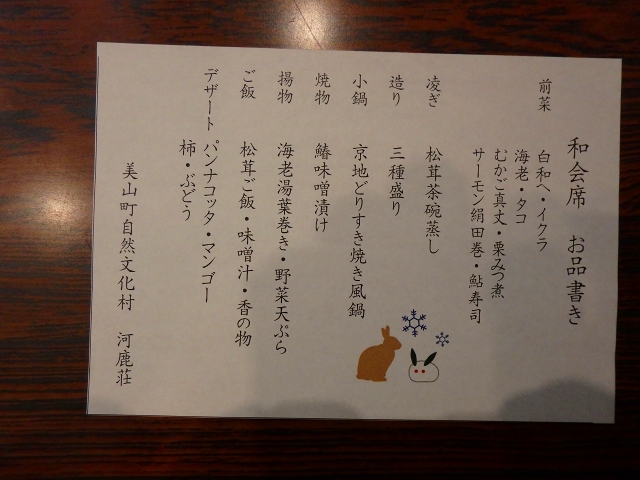 和会席 お品書き
前菜 白和へ・イクラ
海老・タコ
むかご真丈・栗みつ煮
サーモン絹田巻・鮎寿司
凌ぎ 松茸茶碗蒸し
造り 三種盛り
小鍋 京地どりすき焼き風鍋
焼物 鰆味噌漬け
揚物 海老湯葉巻き・野菜天ぷら
ご飯 松茸ご飯・味噌汁・香の物
デザート パンナコッタ・マンゴー
柿・ぶどう
美山町自然文化村 河鹿荘